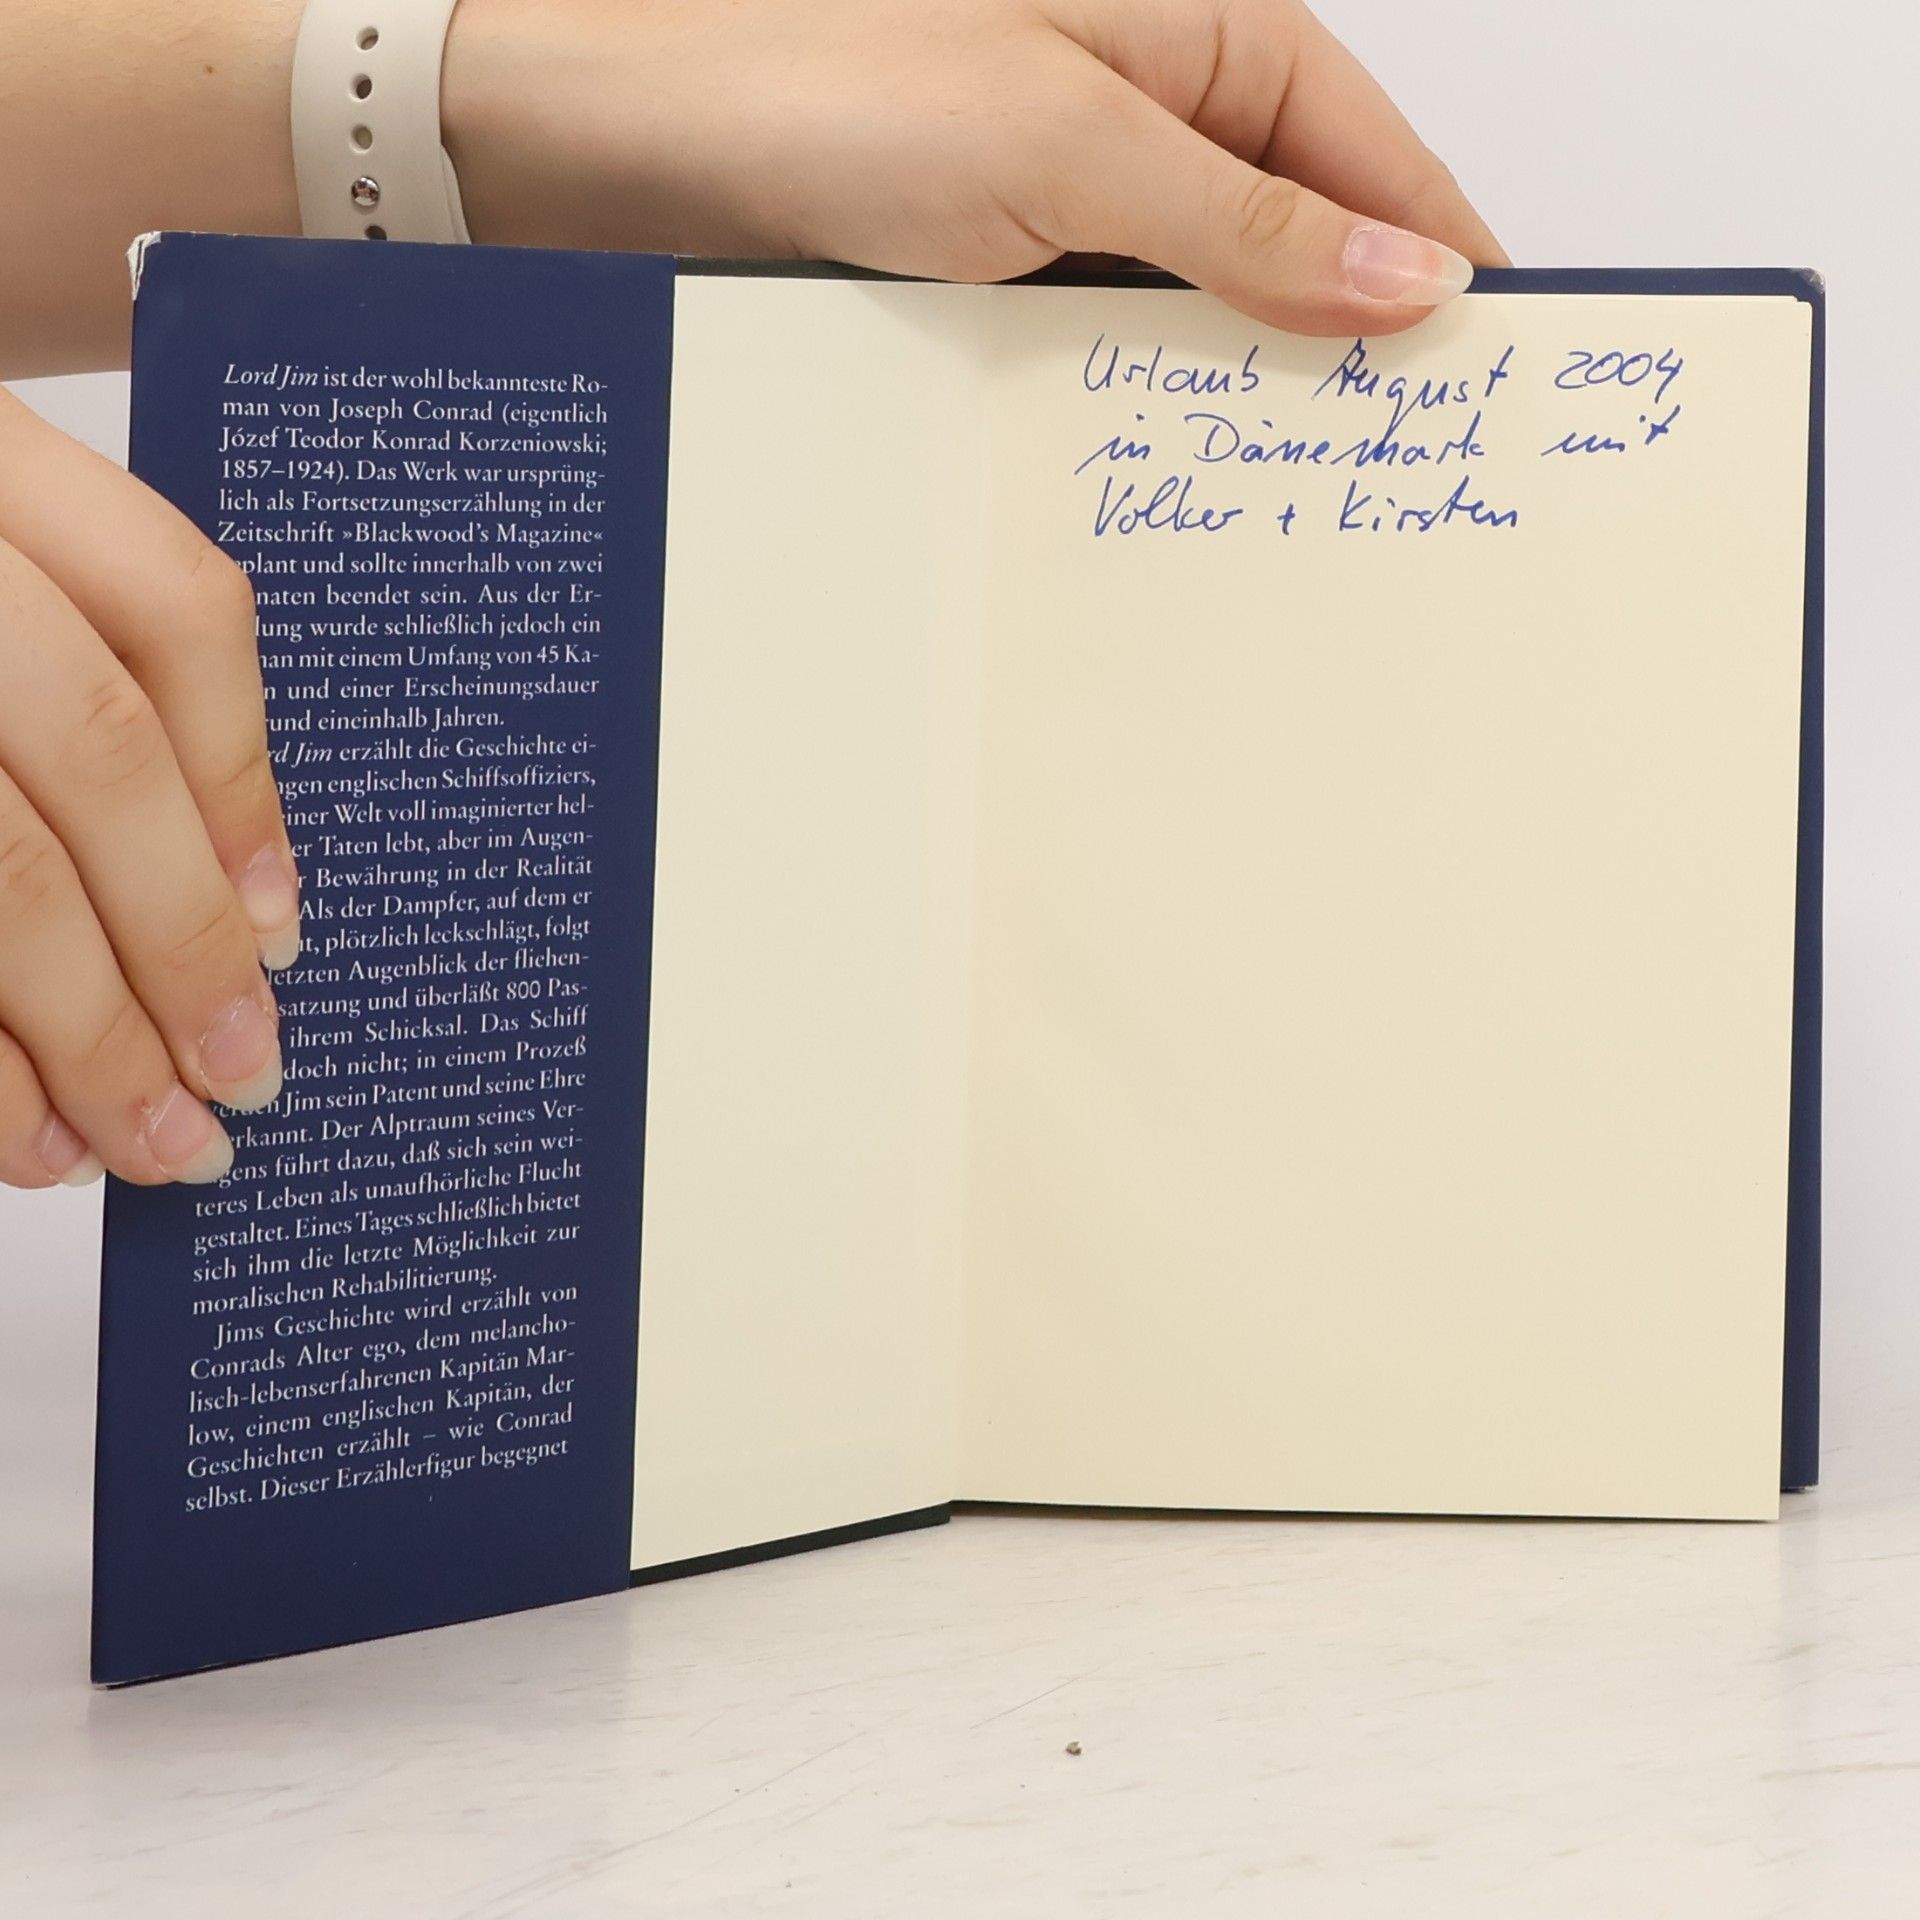 Lord Jim ist der wohl bekannteste Ro-
man von Joseph Conrad (eigentlich
Józef Teodor Konrad Korzeniowski;
1857–1924). Das Werk war ursprüng-
lich als Fortsetzungserzählung in der
Zeitschrift »Blackwood's Magazine«
plant und sollte innerhalb von zwei
naten beendet sein. Aus der Er-
lung wurde schließlich jedoch ein
an mit einem Umfang von 45 Ka-
n und einer Erscheinungsdauer
und eineinhalb Jahren.
rd Jim erzählt die Geschichte ei-
gen englischen Schiffsoffiziers,
einer Welt voll imaginierter hel-
er Taten lebt, aber im Augen-
r Bewährung in der Realität
Als der Dampfer, auf dem er
t, plötzlich leckschlägt, folgt
letzten Augenblick der fliehen-
satzung und überläßt 800 Pas-
ihrem Schicksal. Das Schiff
doch nicht; in einem Prozeß
werden Jim sein Patent und seine Ehre
erkannt. Der Alptraum seines Ver-
gens führt dazu, daß sich sein wei-
teres Leben als unaufhörliche Flucht
gestaltet. Eines Tages schließlich bietet
sich ihm die letzte Möglichkeit zur
moralischen Rehabilitierung.
Jims Geschichte wird erzählt von
Conrads Alter ego, dem melancho-
lisch-lebenserfahrenen Kapitän Mar-
low, einem englischen Kapitän, der
Geschichten erzählt – wie Conrad
selbst. Dieser Erzählerfigur begegnet
Urlaub August 2004
in Dänemark mit
Volker + Kirsten